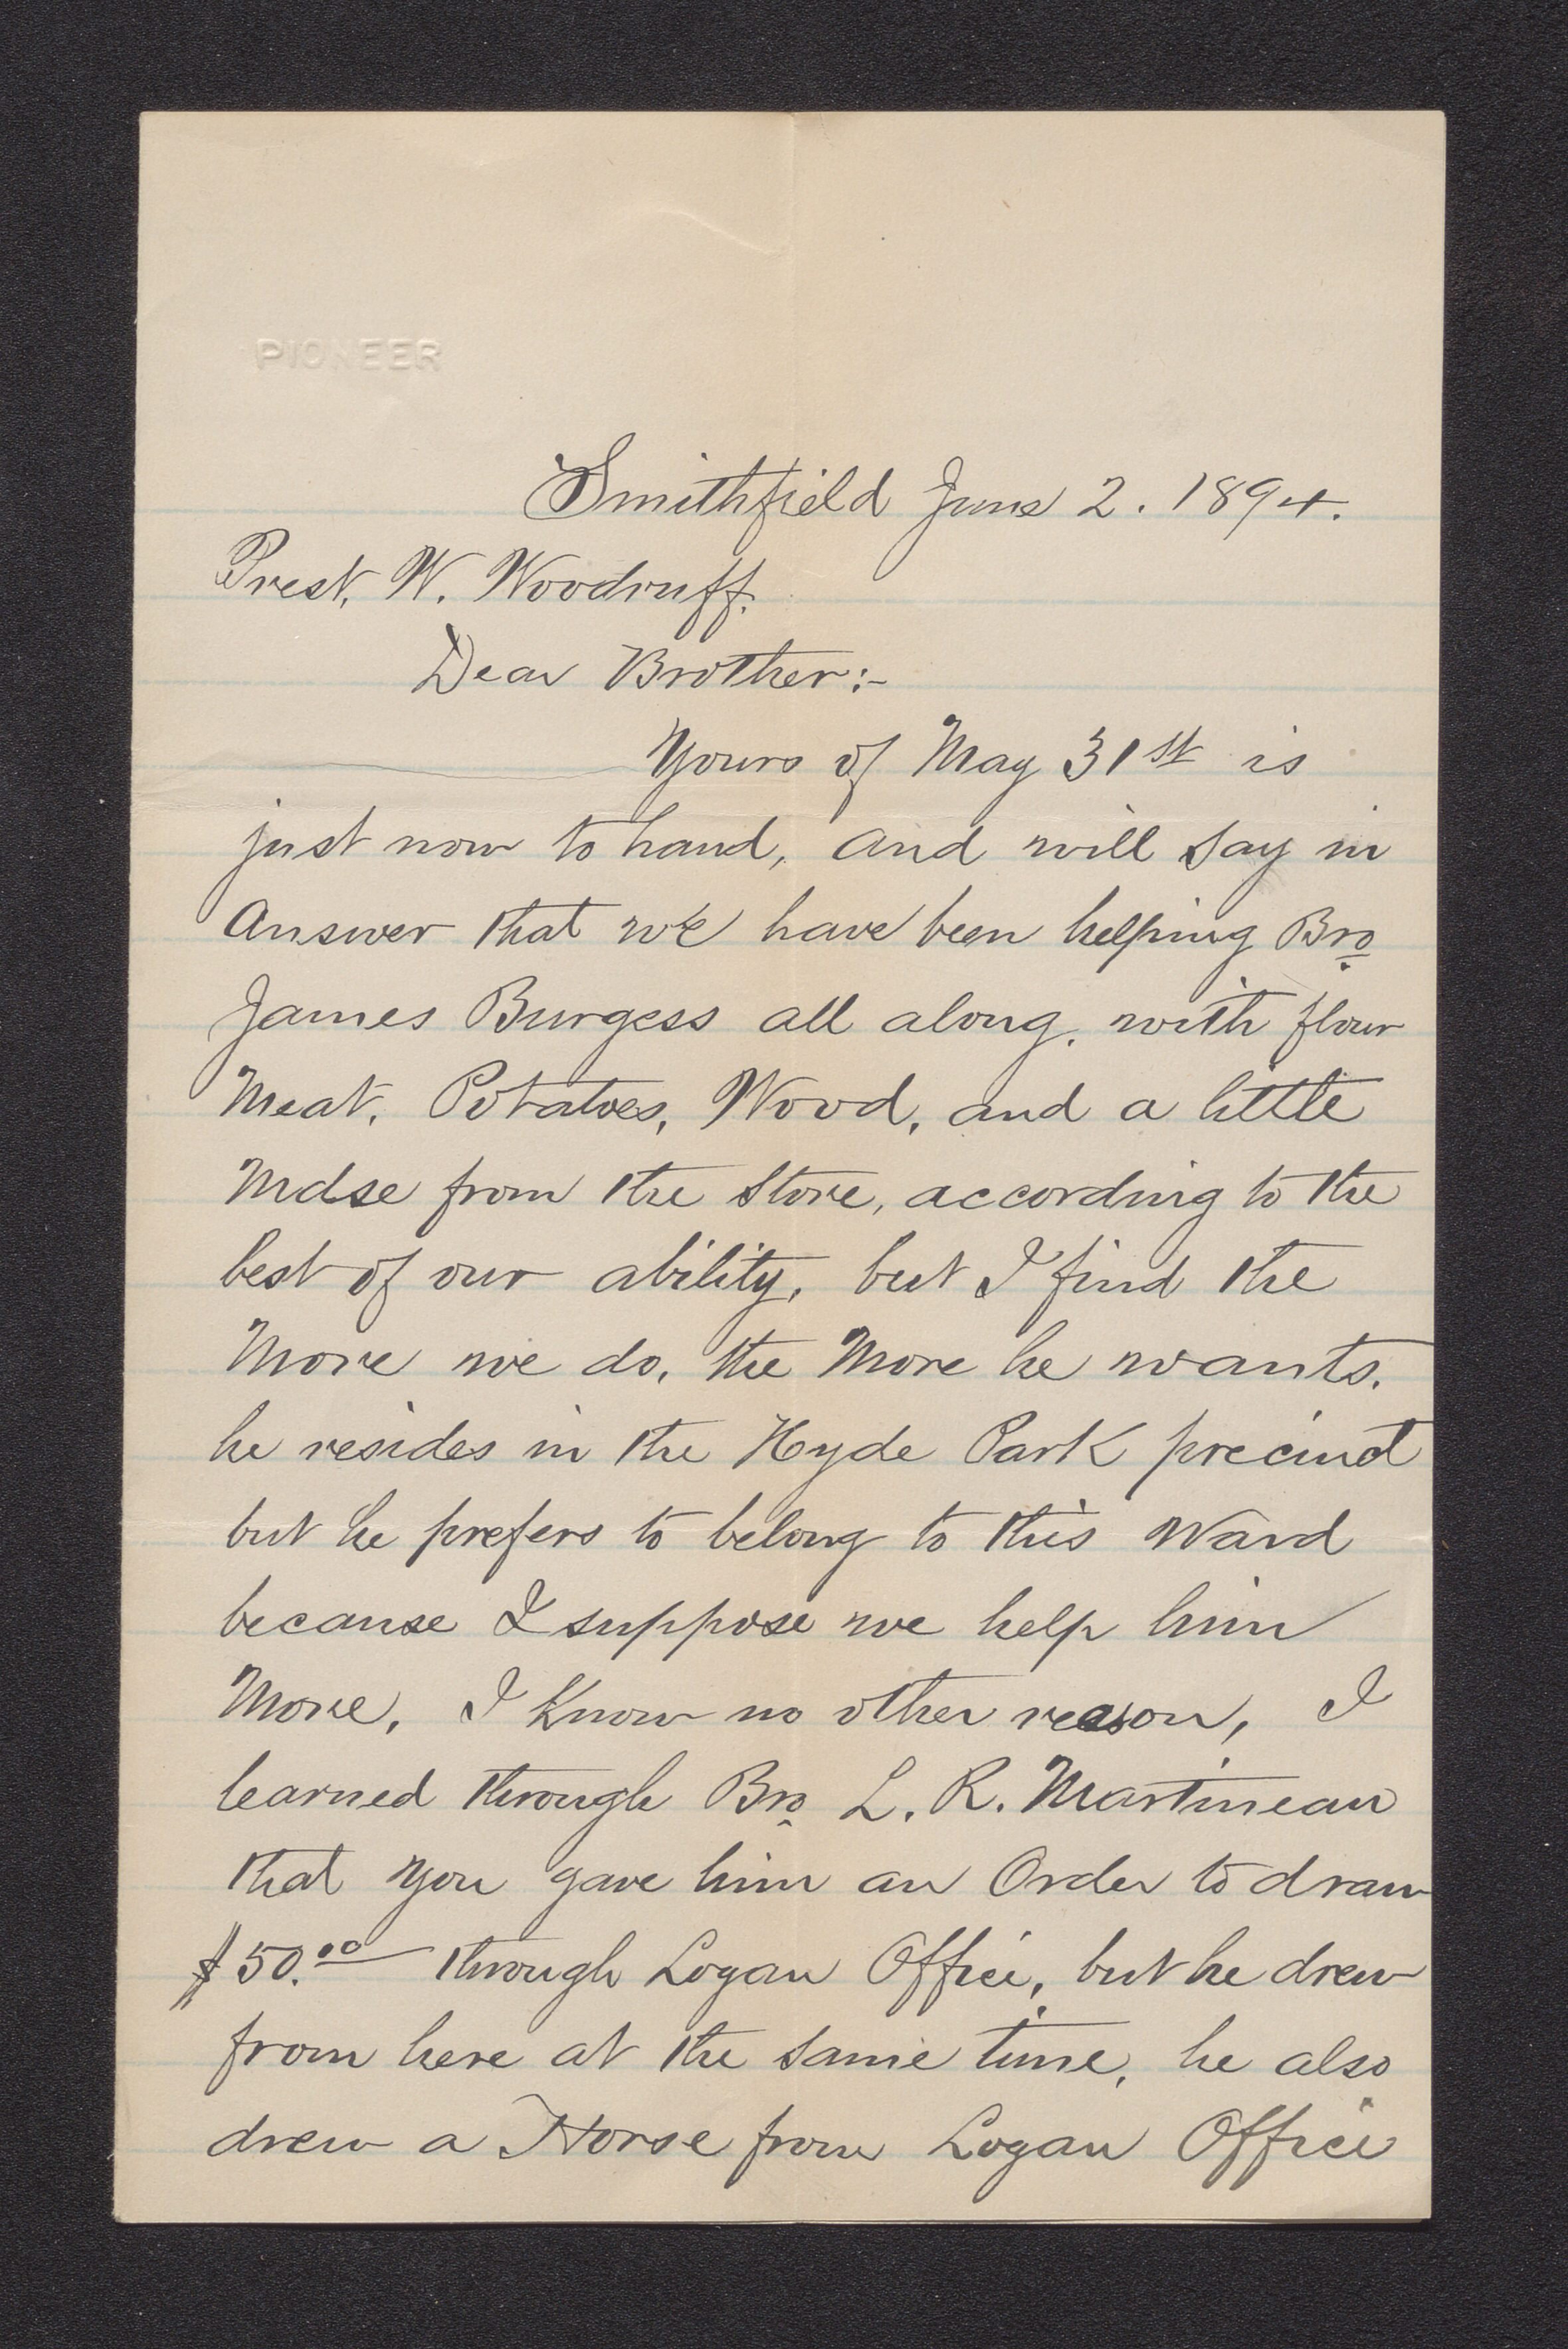 PIONEER
Smithfield June 2. 1894.
Prest. W. Woodruff.
Dear Brother:-
Yours of May 31st is
just now to hand, and will say in
Answer that we have been helping Bro
James Burgess all along. with flour
Meat, Potatoes, Wood, and a little
Mdse from the Store, according to the
best of our ability, but I find the
More we do, the More he wants.
he resides in the Hyde Park precinct
but he prefers to belong to this Ward
because I suppose we help him
More, I Know no other reason, I
learned through Bro. L. R. Martineau
that you gave him an Order to draw
$50.00 through Logan Office, but he drew
from here at the same time, he also
drew a Horse from Logan Office